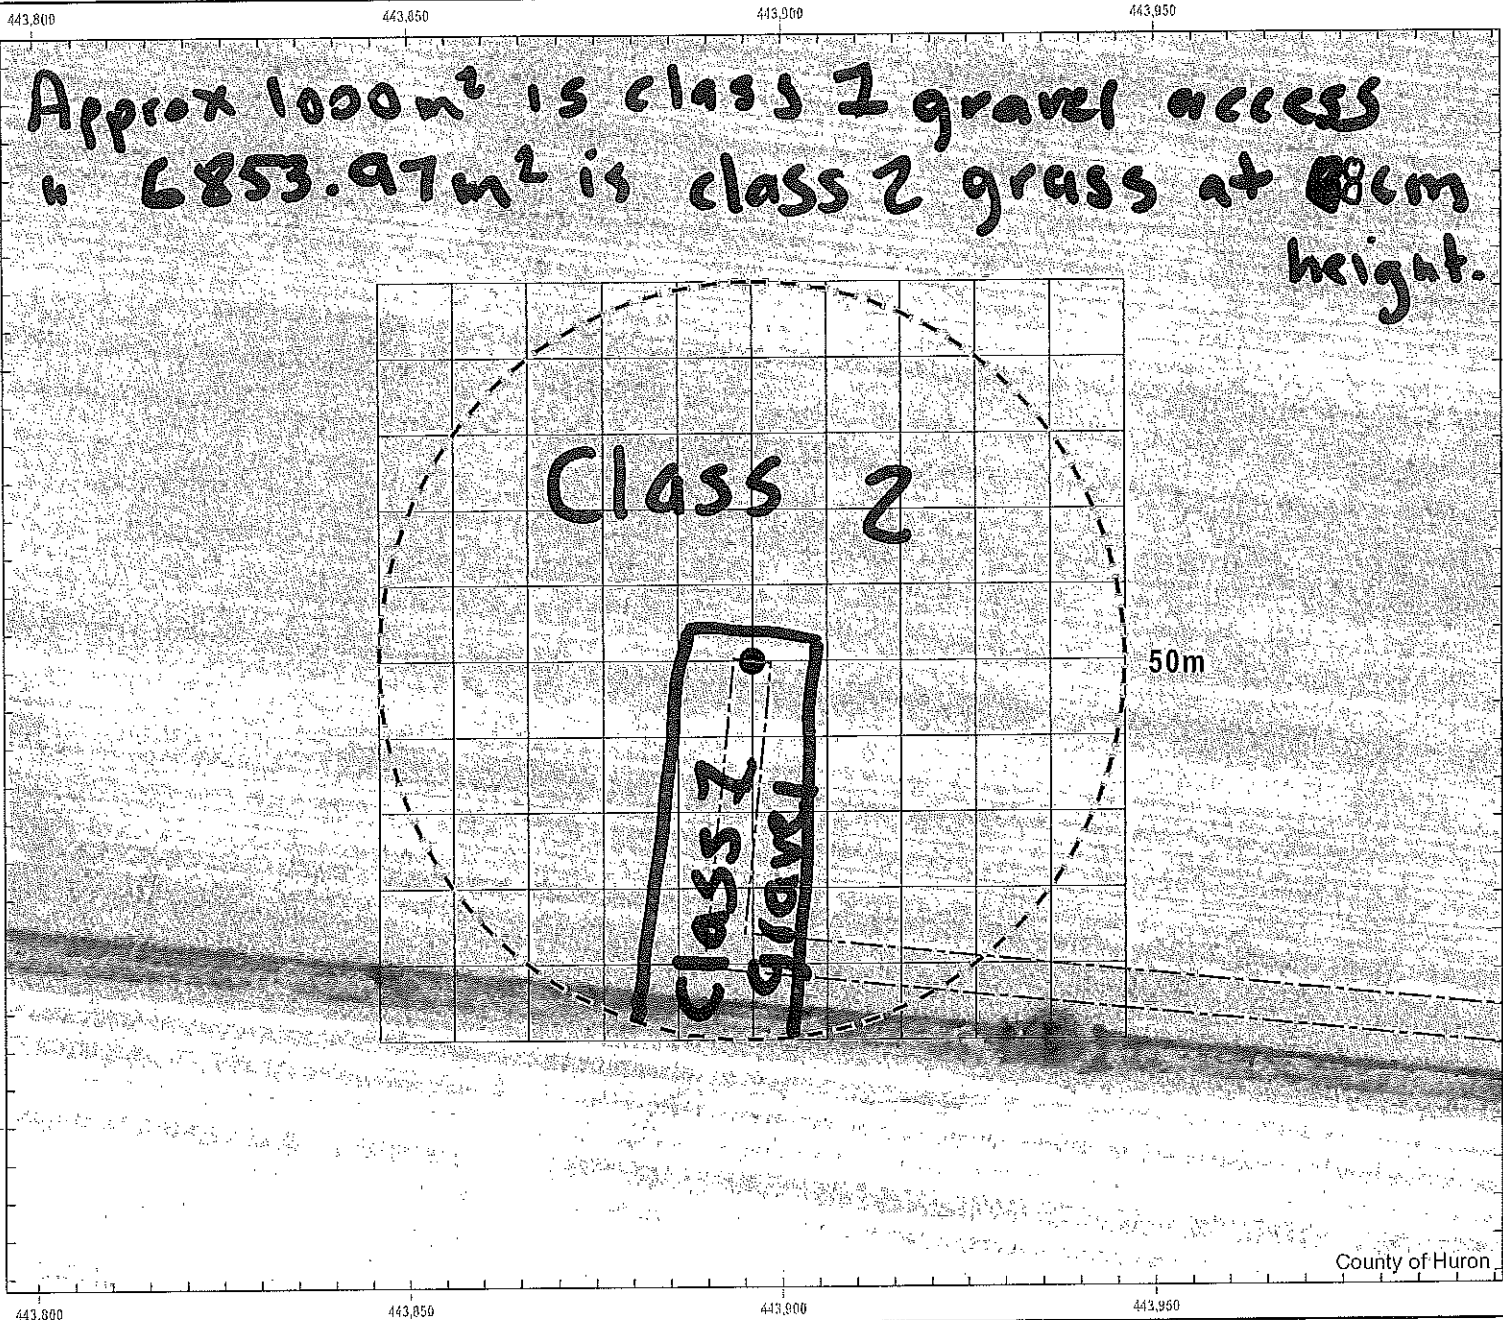 443,800 443,850 443,900 443,950
Approx 1000m² is class 1 gravel access
" 6853.97m² is class 2 grass at 8cm
height.
Class 2
50m
Class 1
gravel
County of Huron
443,800 443,850 443,900 443,950